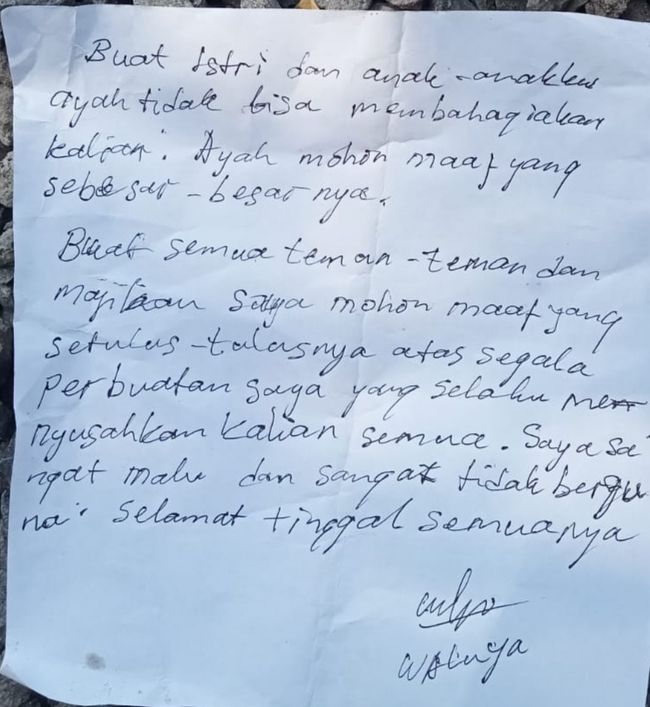 Buat Istri dan anak-anakku
ayah tidak bisa membahagiakan
kalian. Ayah mohon maaf yang
sebesar-besarnya.
Buat semua teman-teman dan
saya mohon maaf yang
setulus-tulusnya atas segala
perbuatan saya yang selalu me
nyusahkan kalian semua. Saya sa
ngat malu dan sangat tidak bergu
na. Selamat tinggal semuanya